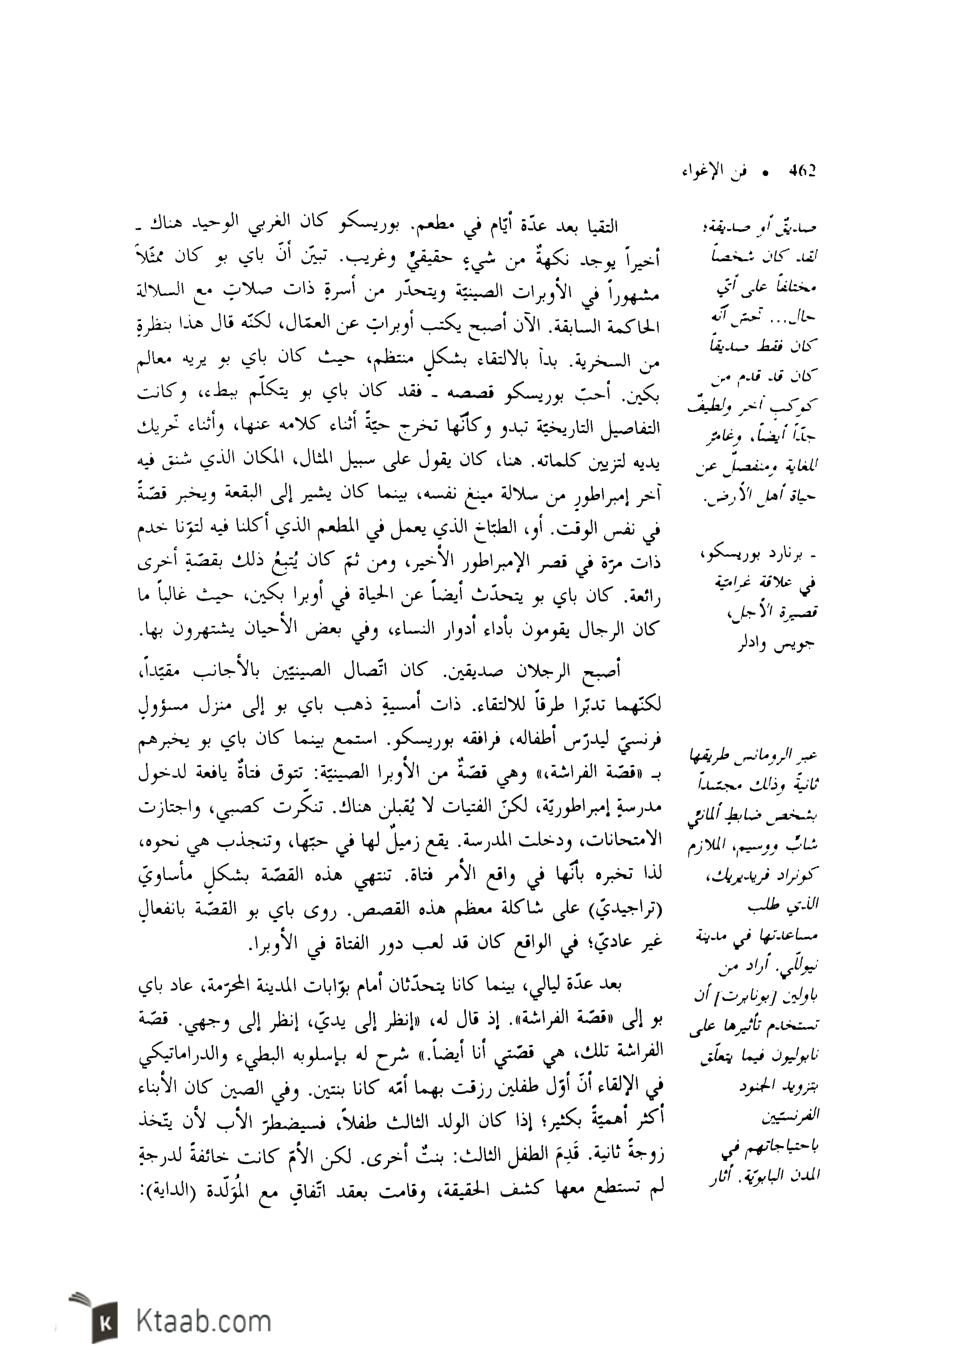 462 • فن الإغواء
صديقٌ أو صديقة؛
لقد كان شخصاً
مختلفاً على أيّ
حال... تحسّ أنّه
كان فقط صديقاً
كان قد قدم من
كوكبٍ آخر ولطيفٌ
جدّاً أيضاً، وغامرٌ
للغاية ومنفصلٌ عن
حياة أهل الأرض.
ـ برنارد بوريسكو،
في علاقة غراميّة
قصيرة الأجل،
جويس وادلر
عبر الرومانس طريقها
ثانيةً وذلك مجسّداً
بشخص ضابطٍ ألمانيٍّ
شابٍّ ووسيم، الملازم
كونراد فريديريك،
الذي طلب
مساعدتها في مدينة
نيوللّي. أراد من
باولين [بونابرت] أن
تستخدم تأثيرها على
نابوليون فيما يتعلّق
بتزويد الجنود
الفرنسيّين
باحتياجاتهم في
المدن البابويّة. أثار
التقيا بعد عدّة أيّام في مطعم. بوريسكو كان الغربي الوحيد هناك ـ
أخيراً يوجد نكهةٌ من شيءٍ حقيقيٍّ وغريب. تبيّن أنّ باي بو كان ممثّلاً
مشهوراً في الأوبرات الصينيّة ويتحدّر من أسرةٍ ذات صلاتٍ مع السلالة
الحاكمة السابقة. الآن أصبح يكتب أوبراتٍ عن العمّال، لكنّه قال هذا بنظرةٍ
من السخرية. بدآ بالالتقاء بشكلٍ منتظم، حيث كان باي بو يريه معالم
بكين. أحبّ بوريسكو قصصه ـ فقد كان باي بو يتكلّم ببطء، وكانت
التفاصيل التاريخيّة تبدو وكأنّها تخرج حيّةً أثناء كلامه عنها، وأثناء تحريك
يديه لتزيين كلماته. هنا، كان يقول على سبيل المثال، المكان الذي شنق فيه
آخر إمبراطورٍ من سلالة مينغ نفسه، بينما كان يشير إلى البقعة ويخبر قصّةً
في نفس الوقت. أو، الطبّاخ الذي يعمل في المطعم الذي أكلنا فيه لتوّنا خدم
ذات مرّة في قصر الإمبراطور الأخير، ومن ثمّ كان يُتبعُ ذلك بقصّةٍ أخرى
رائعة. كان باي بو يتحدّث أيضاً عن الحياة في أوبرا بكين، حيث غالباً ما
كان الرجال يقومون بأداء أدوار النساء، وفي بعض الأحيان يشتهرون بها.
أصبح الرجلان صديقين. كان اتّصال الصينيّين بالأجانب مقيّداً،
لكنّهما تدبّرا طرقاً للالتقاء. ذات أمسيةٍ ذهب باي بو إلى منزل مسؤولٍ
فرنسيّ ليدرّس أطفاله، فرافقه بوريسكو. استمع بينما كان باي بو يخبرهم
بـ «قصّة الفراشة،» وهي قصّةٌ من الأوبرا الصينيّة: تتوق فتاةٌ يافعة لدخول
مدرسةٍ إمبراطوريّة، لكنّ الفتيات لا يُقبلن هناك. تنكّرت كصبي، واجتازت
الامتحانات، ودخلت المدرسة. يقع زميلٌ لها في حبّها، وتنجذب هي نحوه،
لذا تخبره بأنّها في واقع الأمر فتاة. تنتهي هذه القصّة بشكلٍ مأساويّ
(تراجيديّ) على شاكلة معظم هذه القصص. روى باي بو القصّة بانفعالٍ
غير عاديّ؛ في الواقع كان قد لعب دور الفتاة في الأوبرا.
بعد عدّة ليالي، بينما كانا يتحدّثان أمام بوّابات المدينة المحرّمة، عاد باي
بو إلى «قصّة الفراشة». إذ قال له، «إنظر إلى يديّ، إنظر إلى وجهي. قصّة
الفراشة تلك، هي قصّتي أنا أيضاً.» شرح له بإسلوبه البطيء والدراماتيكي
في الإلقاء أنّ أوّل طفلين رزقت بهما أمّه كانا بنتين. وفي الصين كان الأبناء
أكثر أهميّةً بكثير؛ إذا كان الولد الثالث طفلاً، فسيضطرّ الأب لأن يتّخذ
زوجةً ثانية. قَدِمَ الطفل الثالث: بنتٌ أخرى. لكن الأمّ كانت خائفةً لدرجةٍ
لم تستطع معها كشف الحقيقة، وقامت بعقد اتّفاقٍ مع المُولّدة (الداية):
Ktaab.com